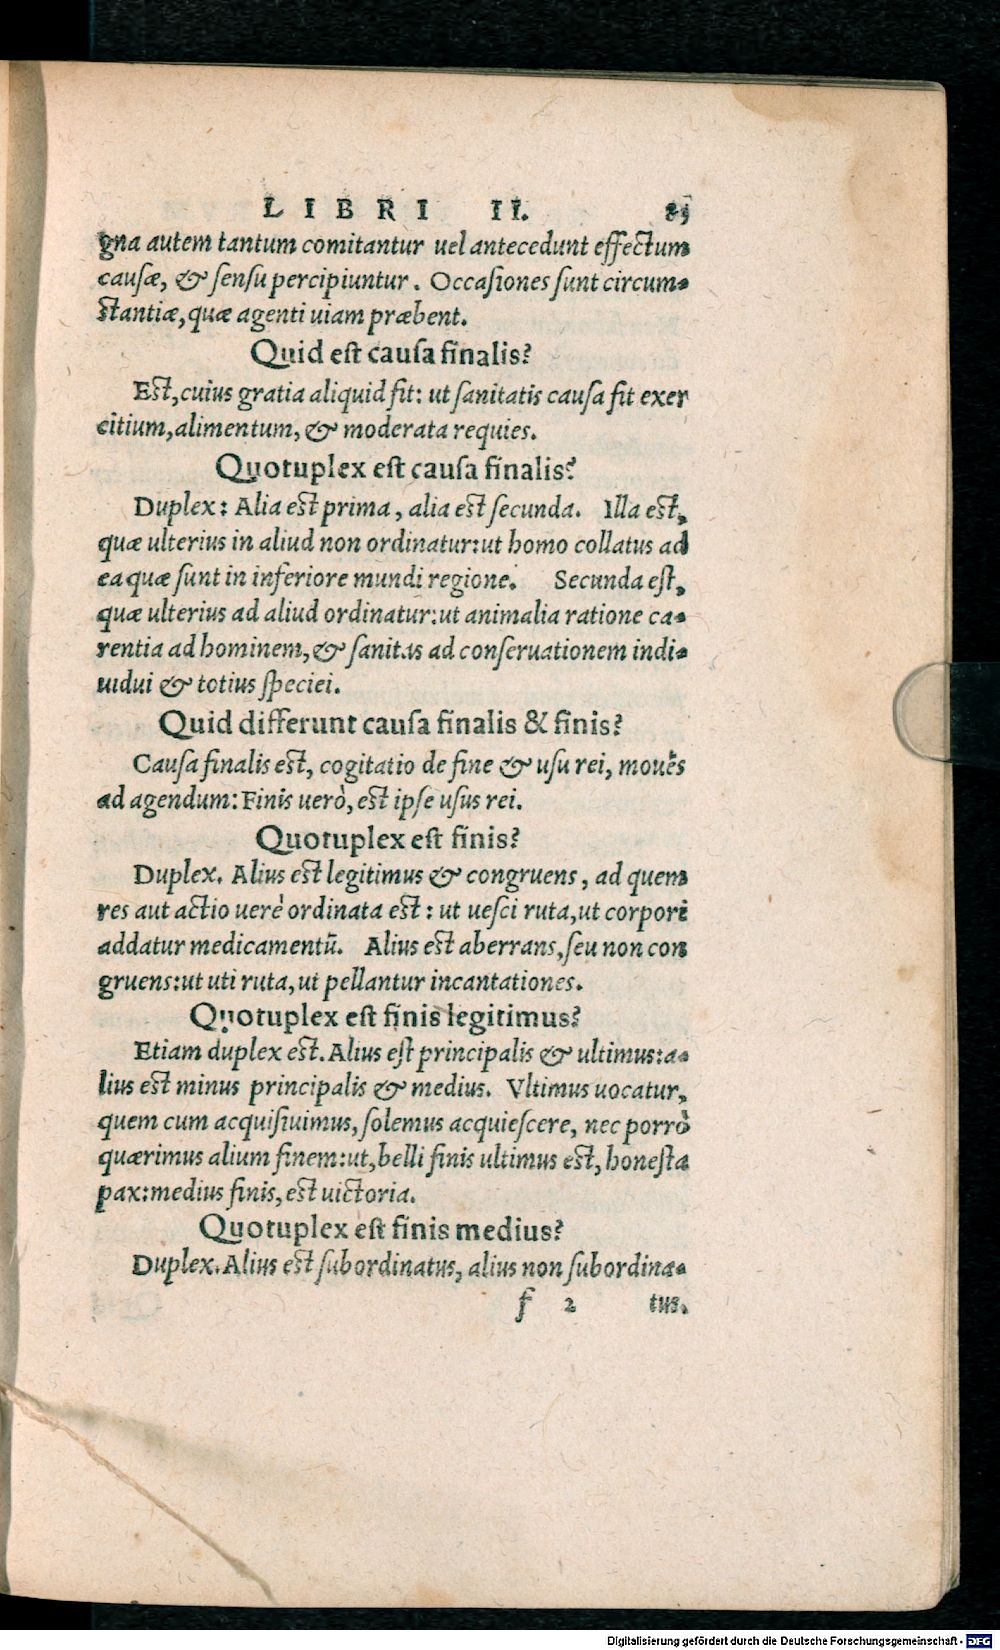 LIBRI II. 85
gna autem tantum comitantur uel antecedunt effectum
causæ, & sensu percipiuntur. Occasiones sunt circum-
stantiæ, quæ agenti uiam præbent.
Quid est causa finalis?
Est, cuius gratia aliquid fit: ut sanitatis causa fit exer
citium, alimentum, & moderata requies.
Quotuplex est causa finalis?
Duplex: Alia est prima, alia est secunda. Illa est,
quæ ulterius in aliud non ordinatur: ut homo collatus ad
ea quæ sunt in inferiore mundi regione. Secunda est,
quæ ulterius ad aliud ordinatur: ut animalia ratione ca-
rentia ad hominem, & sanitas ad conseruationem indi-
uidui & totius speciei.
Quid differunt causa finalis & finis?
Causa finalis est, cogitatio de fine & usu rei, mouẽs
ad agendum: Finis uerò, est ipse usus rei.
Quotuplex est finis?
Duplex. Alius est legitimus & congruens, ad quem
res aut actio uerè ordinata est: ut uesci ruta, ut corpori
addatur medicamentũ. Alius est aberrans, seu non con
gruens: ut uti ruta, ut pellantur incantationes.
Quotuplex est finis legitimus?
Etiam duplex est. Alius est principalis & ultimus: a-
lius est minus principalis & medius. Vltimus uocatur,
quem cum acquisiuimus, solemus acquiescere, nec porrò
quærimus alium finem: ut, belli finis ultimus est, honesta
pax: medius finis, est uictoria.
Quotuplex est finis medius?
Duplex. Alius est subordinatus, alius non subordina-
f 2 tus.
Digitalisierung gefördert durch die Deutsche Forschungsgemeinschaft - DFG